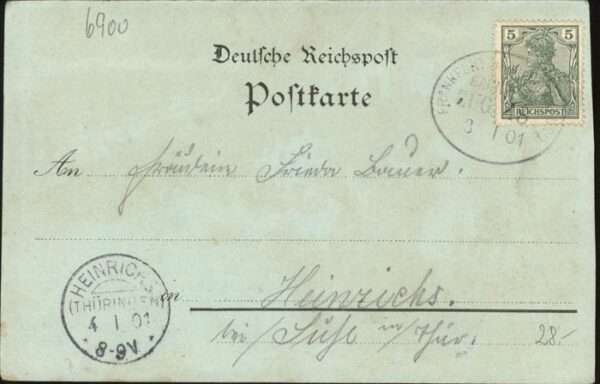 6900
5 5
REICHSPOST
Deutsche Reichspost
Postkarte
FRANKFURT
ZUG
3 1 01
An Fräulein Frieda Bauer.
HEINRICHS
(THÜRINGEN)
4 1 01
8-9V
in Heinrichs.
bei Suhl in Thür.
28.-